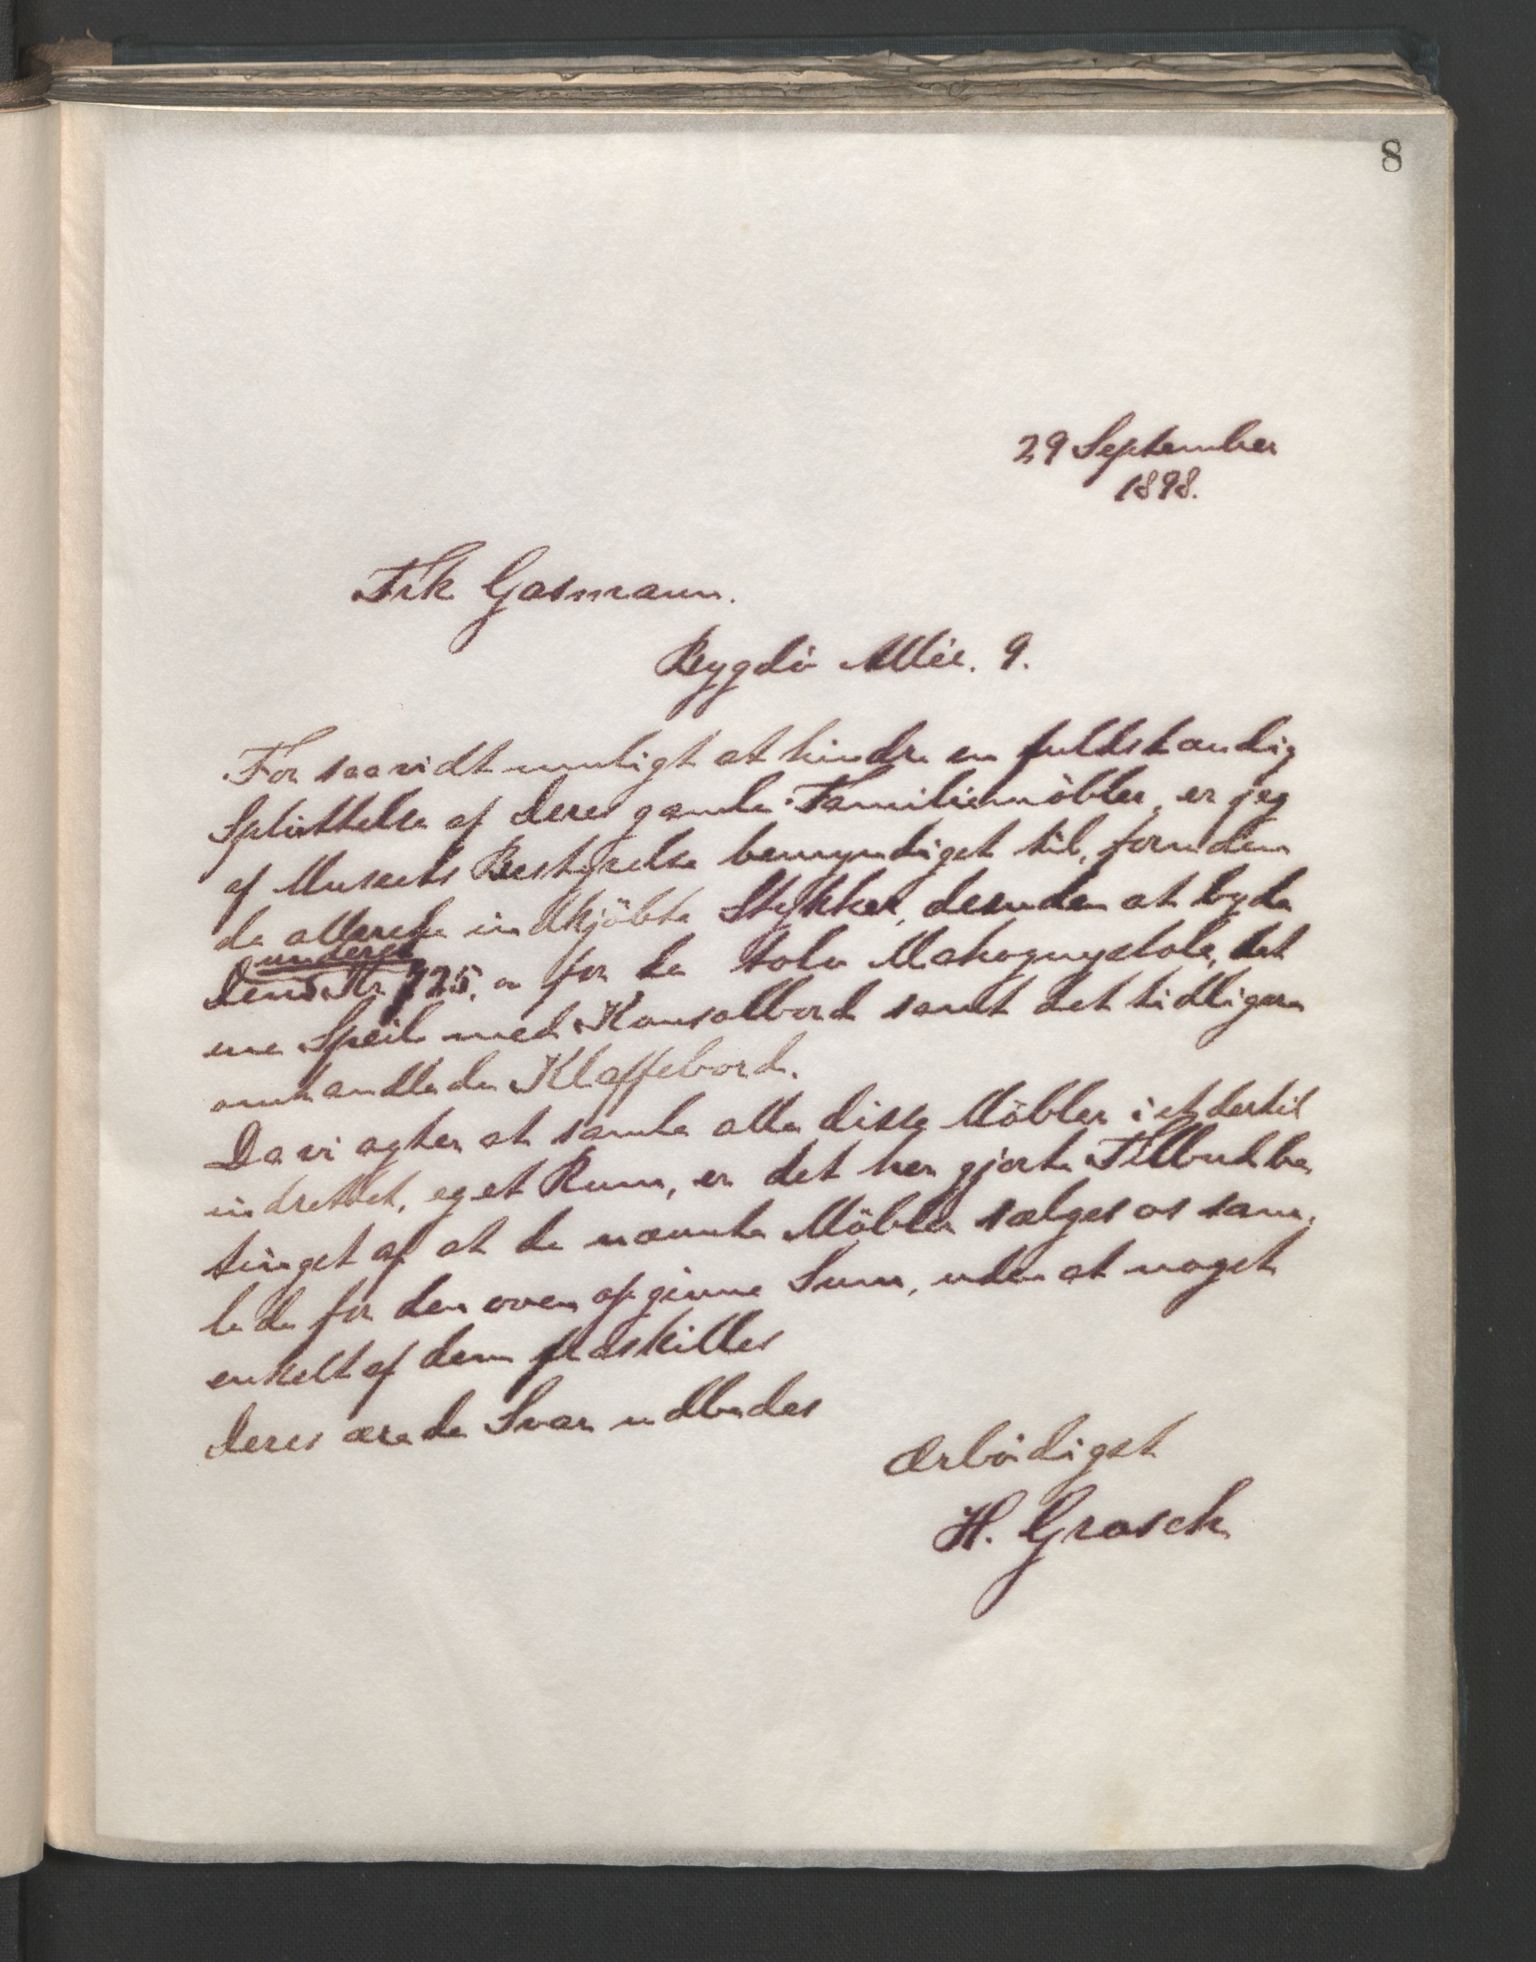 8
29 September
1898.
Frk Gasmann.
Bygdö Allée. 9.
For saavidt muligt at hindre en fuldstændig
Splittelse af Deres gamle Familiemöbler, er jeg
af Museets Bestyrelse bemyndiget til, foruden
de allerede indkjöbte Stykker, desuden at byde
underet
Dem Kr 725, for de tolv Mahognystole, det
ene Speil med Konsolbord samt det tidligere
omhandlede Klaffebord.
Da vi agter at samle alle disse Möbler i et dertil
indrettet, eget Rum, er det her gjorte Tilbud be
tinget af at de nævnte Möbler sælges os sam,
lede for den oven opgivne Sum, uden at noget
enkelt af dem fraskilles
Deres ærede Svar udbedes
Ærbödigst
H. Grosch